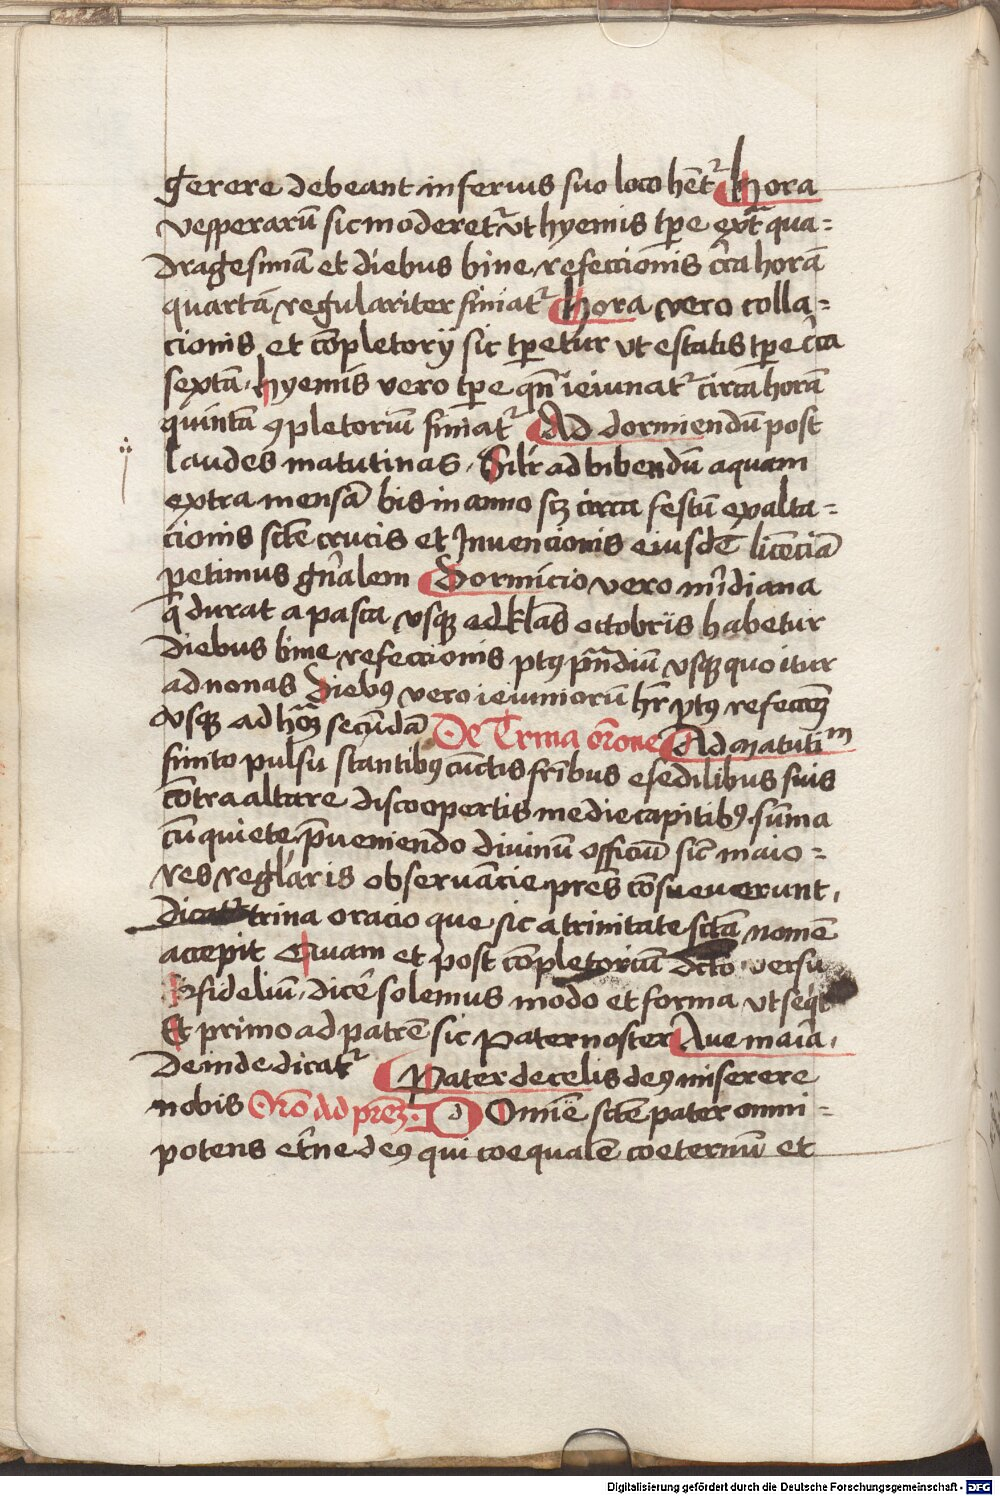 gerere debeant inferius suo loco hētʳ Hora
vesperarū sic moderetʳ vt hyemis tp̄e extᵃ qua=
dragesimā et diebus bine refeccionis cīca horā
quartā regulariter finiatʳ Hora vero colla=
cionis et cōpletorij sic tꝑetur vt estatis tp̄e cīca
sextā, hyemis vero tp̄e qn̄ ieiunatʳ circa horā
quintā ꝯpletoriū finiatʳ Ad dormiendū post
laudes matutinas, Silr̄ ad bibendū aquam
extra mensā bis in anno scꝫ circa festū exalta=
cionis sct̄e crucis et Inuencionis eiusdē licēciā
petimus gn̄alem Dormicio vero mr̄idiana
q̄ durat a pasca vsqꝫ ad kl̄as octobris habetur
diebus bine refeccionis ptꝰ pn̄diū vsqꝫ quo itur
ad nonas Diebꝰ vero ieiuniorū hr̄ ptꝰ refeccōꝫ
vsqꝫ ad horā secūdā De Trina or̄one Ad matutiᵐ
finito pulsu stantibꝰ cūctis fr̄ibus e sedilibus suis
cōtra altare discoopertis medie capitibꝰ sūma
cū quiete p̄ueniendo diuinū officiū sic maio=
res regl̄aris obseruācie pr̄es cōsueuerunt,
dicatʳ trina oracio que sic a trinitate sctā nomē
accepit Quam et post cōpletoriū dc̄to versu
fideliū, dicē solemus modo et forma vt seqʳ
Et primo ad patrē sic Pater noster Aue maīa,
Deinde dicatʳ Pater de celis deꝰ miserere
nobis Or̄o Ad pr̄eꝫ. D Omīe scte pater omni=
potens et̄ne deꝰ qui coequalē coeternū et
ij
Digitalisierung gefördert durch die Deutsche Forschungsgemeinschaft - DFG